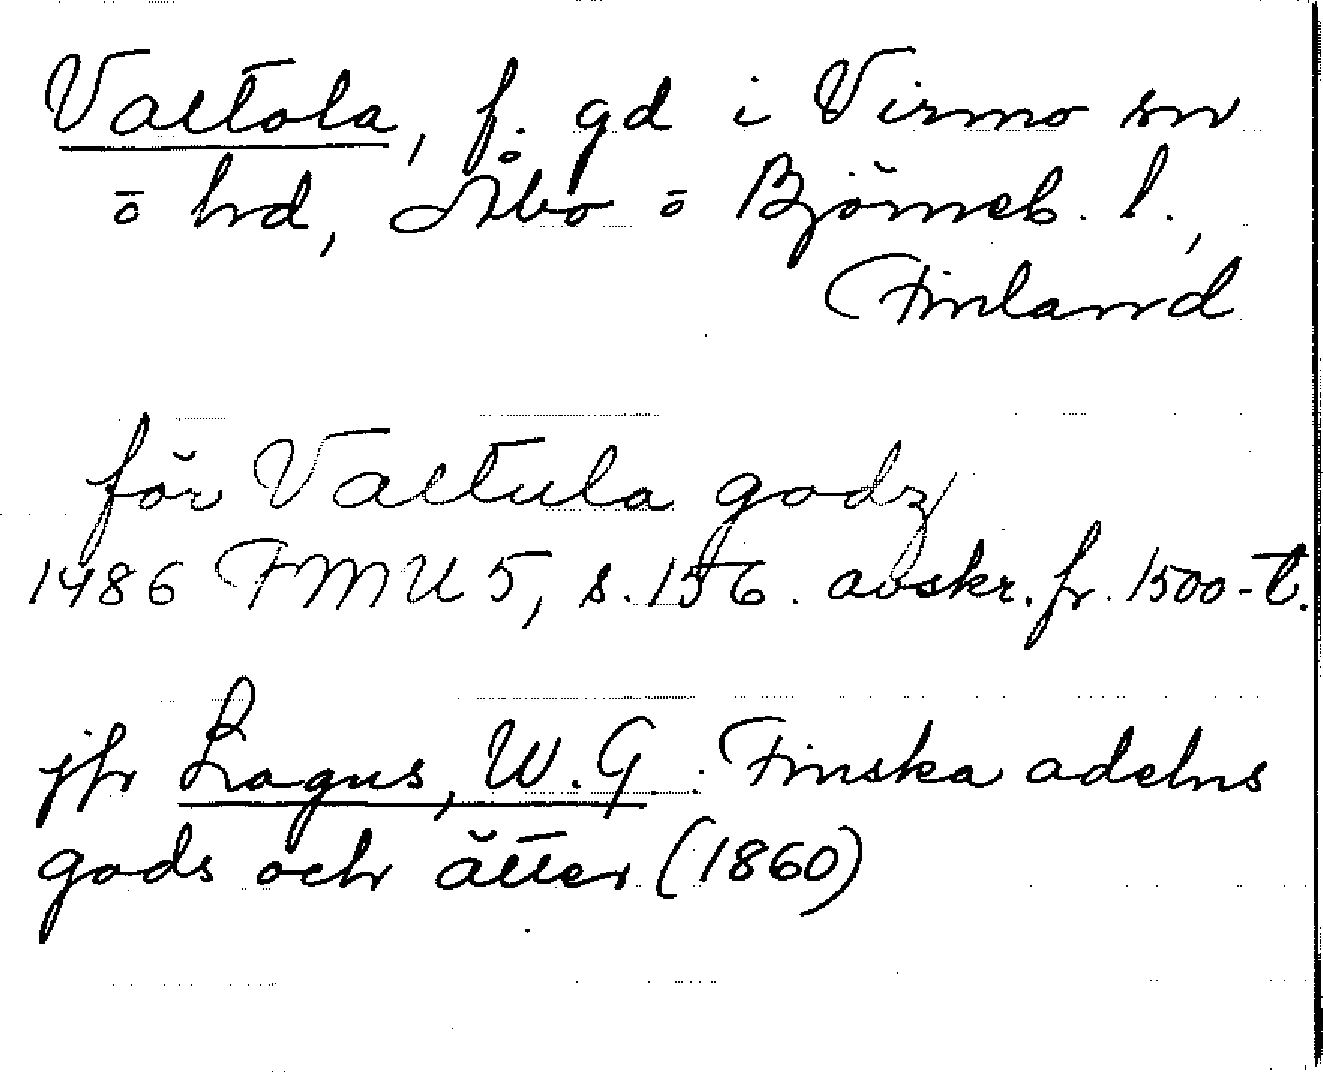 Valtola, f. gd i Virmo sn
o hd, Åbo o Björneb. l.,
Finland
för Valtula godz
1486 FMU 5, s. 156. avskr. fr. 1500-t.
jfr Lagus, W. G. : Finska adelns
gods och ätter (1860)